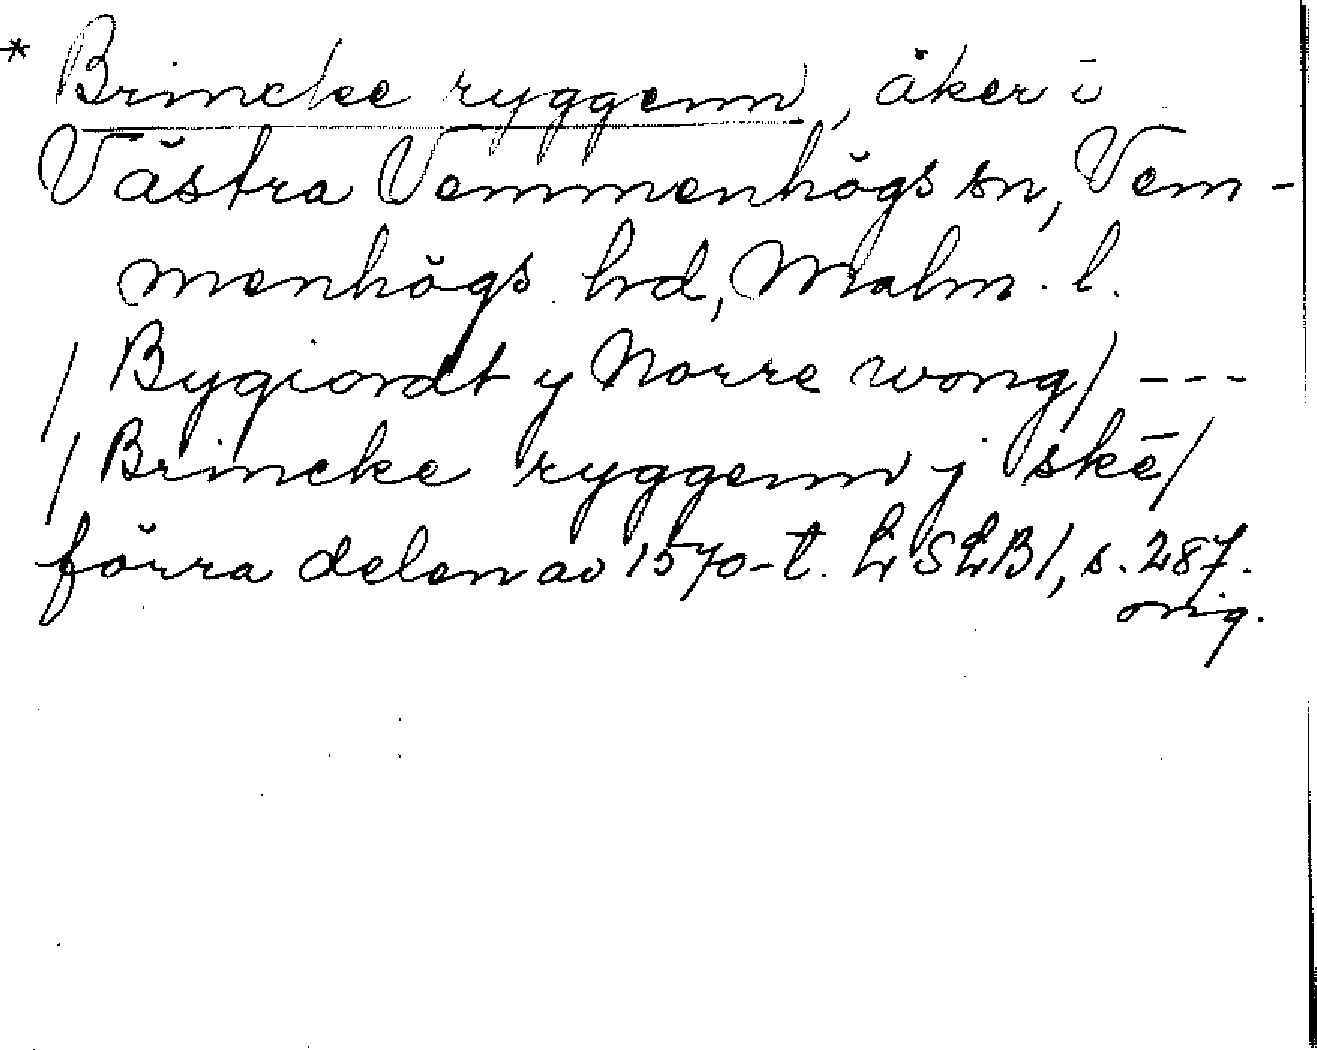 * Brincke ryggenn, åker i
Västra Vemmenhögs sn, Vem-
menhögs hd, Malm. l.
/ Bygiordt y Norre wong/ ---
/ Brincke ryggenn j skē/
förra delen av 1570-t. LSLB1, s. 287.
orig.